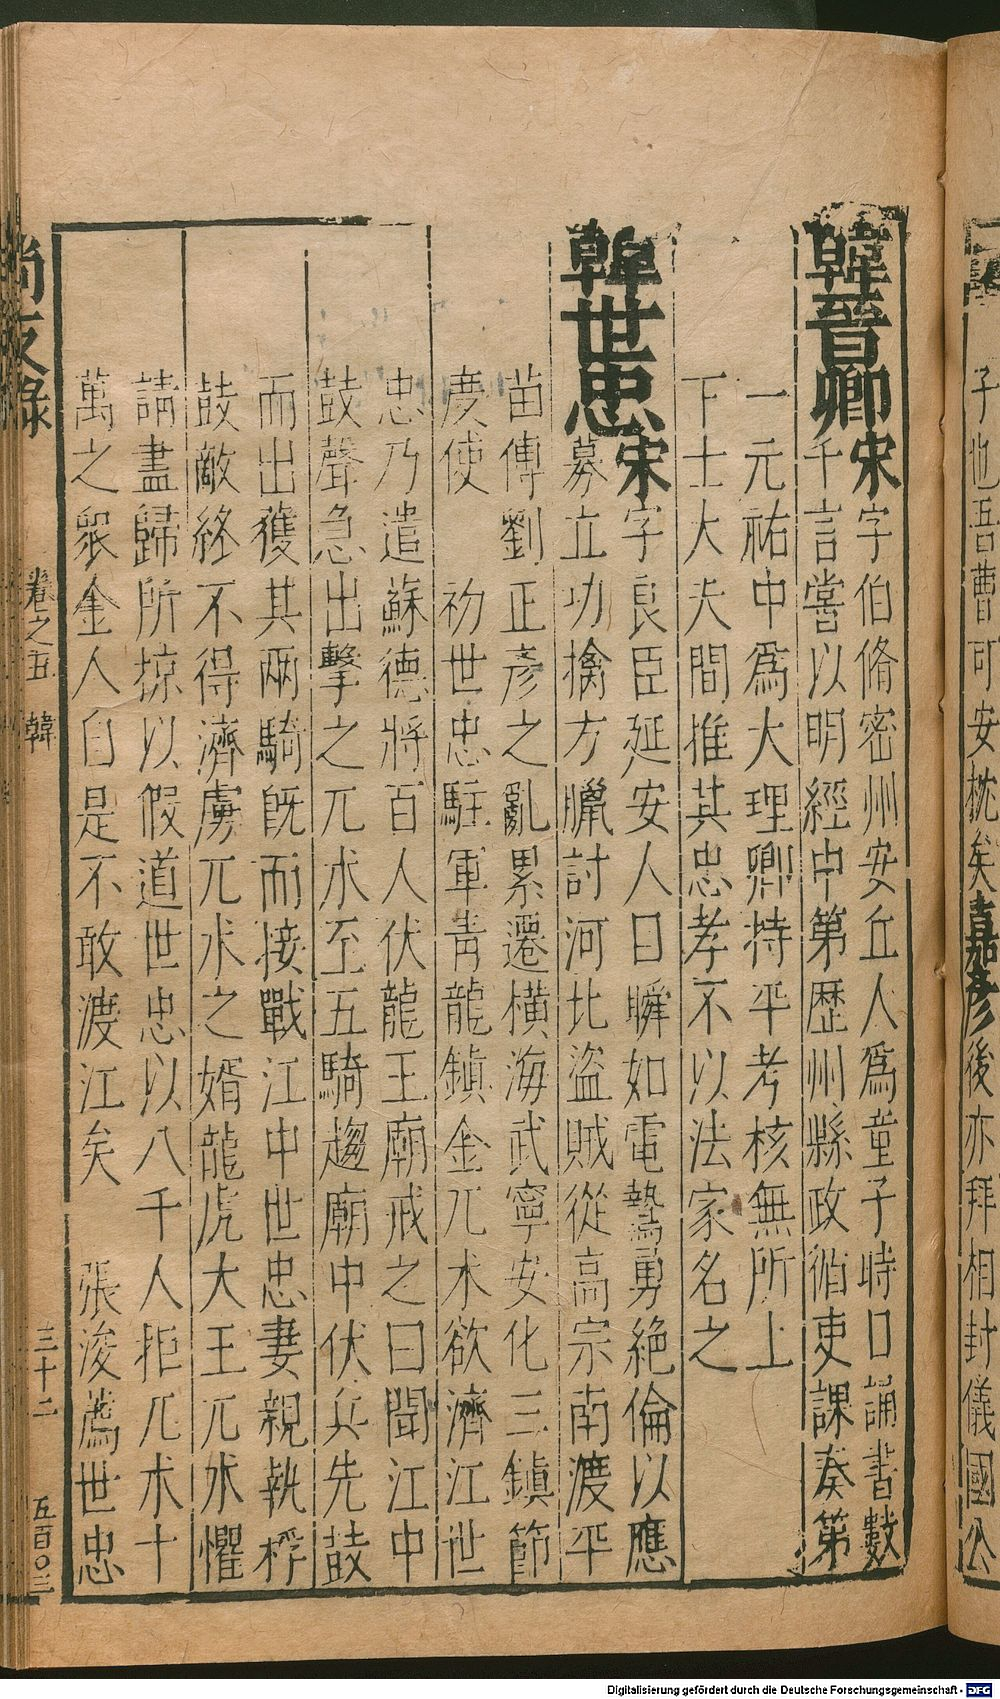 子也吾曹可安枕矣嘉彥後亦拜相封儀國公
韓晉卿宋字伯脩密州安丘人爲童子時日誦書數
千言嘗以明經中第歷州縣政循吏課奏第
一元祐中爲大理卿持平考核無所上
下士大夫間推其忠孝不以法家名之
韓世忠宋字良臣延安人日瞬如電鷙勇絶倫以應
募立功擒方臘討河北盜賊從高宗南渡平
苗傅劉正彥之亂累遷橫海武寧安化三鎮節
度使 初世忠駐軍青龍鎮金兀朮欲濟江世
忠乃遣蘇德將百人伏龍王廟戒之曰聞江中
鼓聲急出擊之兀朮至五騎趨廟中伏兵先鼓
而出獲其兩騎旣而接戰江中世忠妻親執桴
鼓敵終不得濟虜兀朮之婿龍虎大王兀朮懼
請盡歸所掠以假道世忠以八千人拒兀朮十
萬之衆金人自是不敢渡江矣 張浚薦世忠
尚友錄 卷之五 韓 三十二 五百〇三
Digitalisierung gefördert durch die Deutsche Forschungsgemeinschaft - DFG